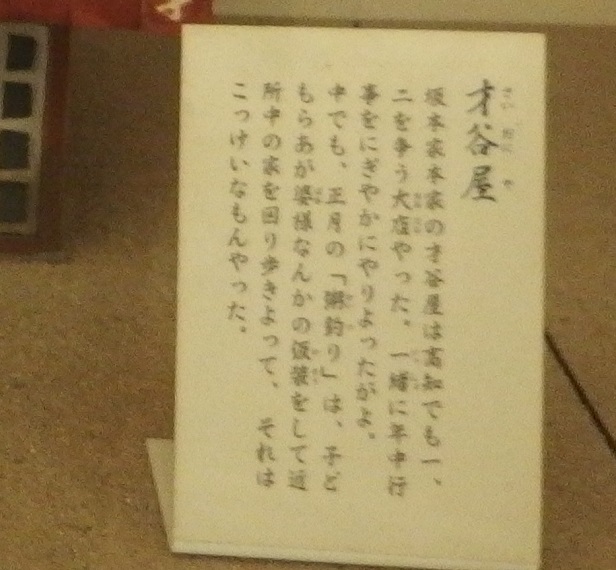 才谷屋
坂本家本家の才谷屋は高知でも一、
二を争う大店やった。一緒に年中行
事をにぎやかにやりよったがよ。
中でも、正月の「粥釣り」は、子ど
もらあが婆様なんかの仮装をして近
所中の家を回り歩きよって、それは
こっけいなもんやった。